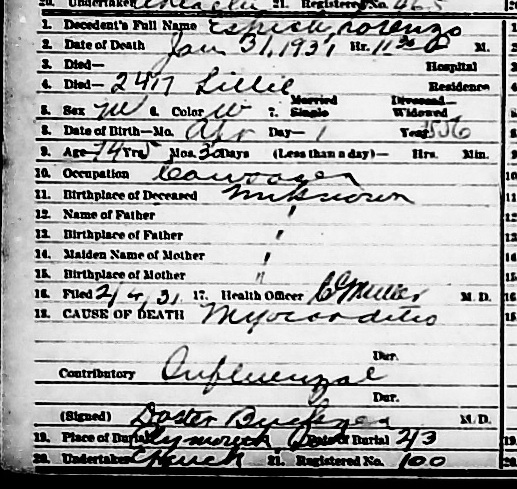 20. Undertaker 21. Registered No. 465
1. Decedent's Full Name Espich, Lorenzo
2. Date of Death Jan 31, 1931 Hr. 11 30 M.
3. Died— Hospital
4. Died— 2417 Lillie Residence
5. Sex M 6. Color W 7. Married Single Divorced Widowed
8. Date of Birth—Mo. Apr Day— 1 Year 1856
9. Age 74 Yrs Mos. 30 Days (Less than a day)— Hrs. Min.
10. Occupation
11. Birthplace of Deceased Unknown
12. Name of Father "
13. Birthplace of Father "
14. Maiden Name of Mother "
15. Birthplace of Mother "
16. Filed 2/4/31 17. Health Officer Miller M. D.
18. CAUSE OF DEATH Myocarditis
Dur.
Contributory Influenzal
Dur.
(Signed) M. D.
19. Place of Burial Date of Burial 2/3
20. Undertaker 21. Registered No. 100